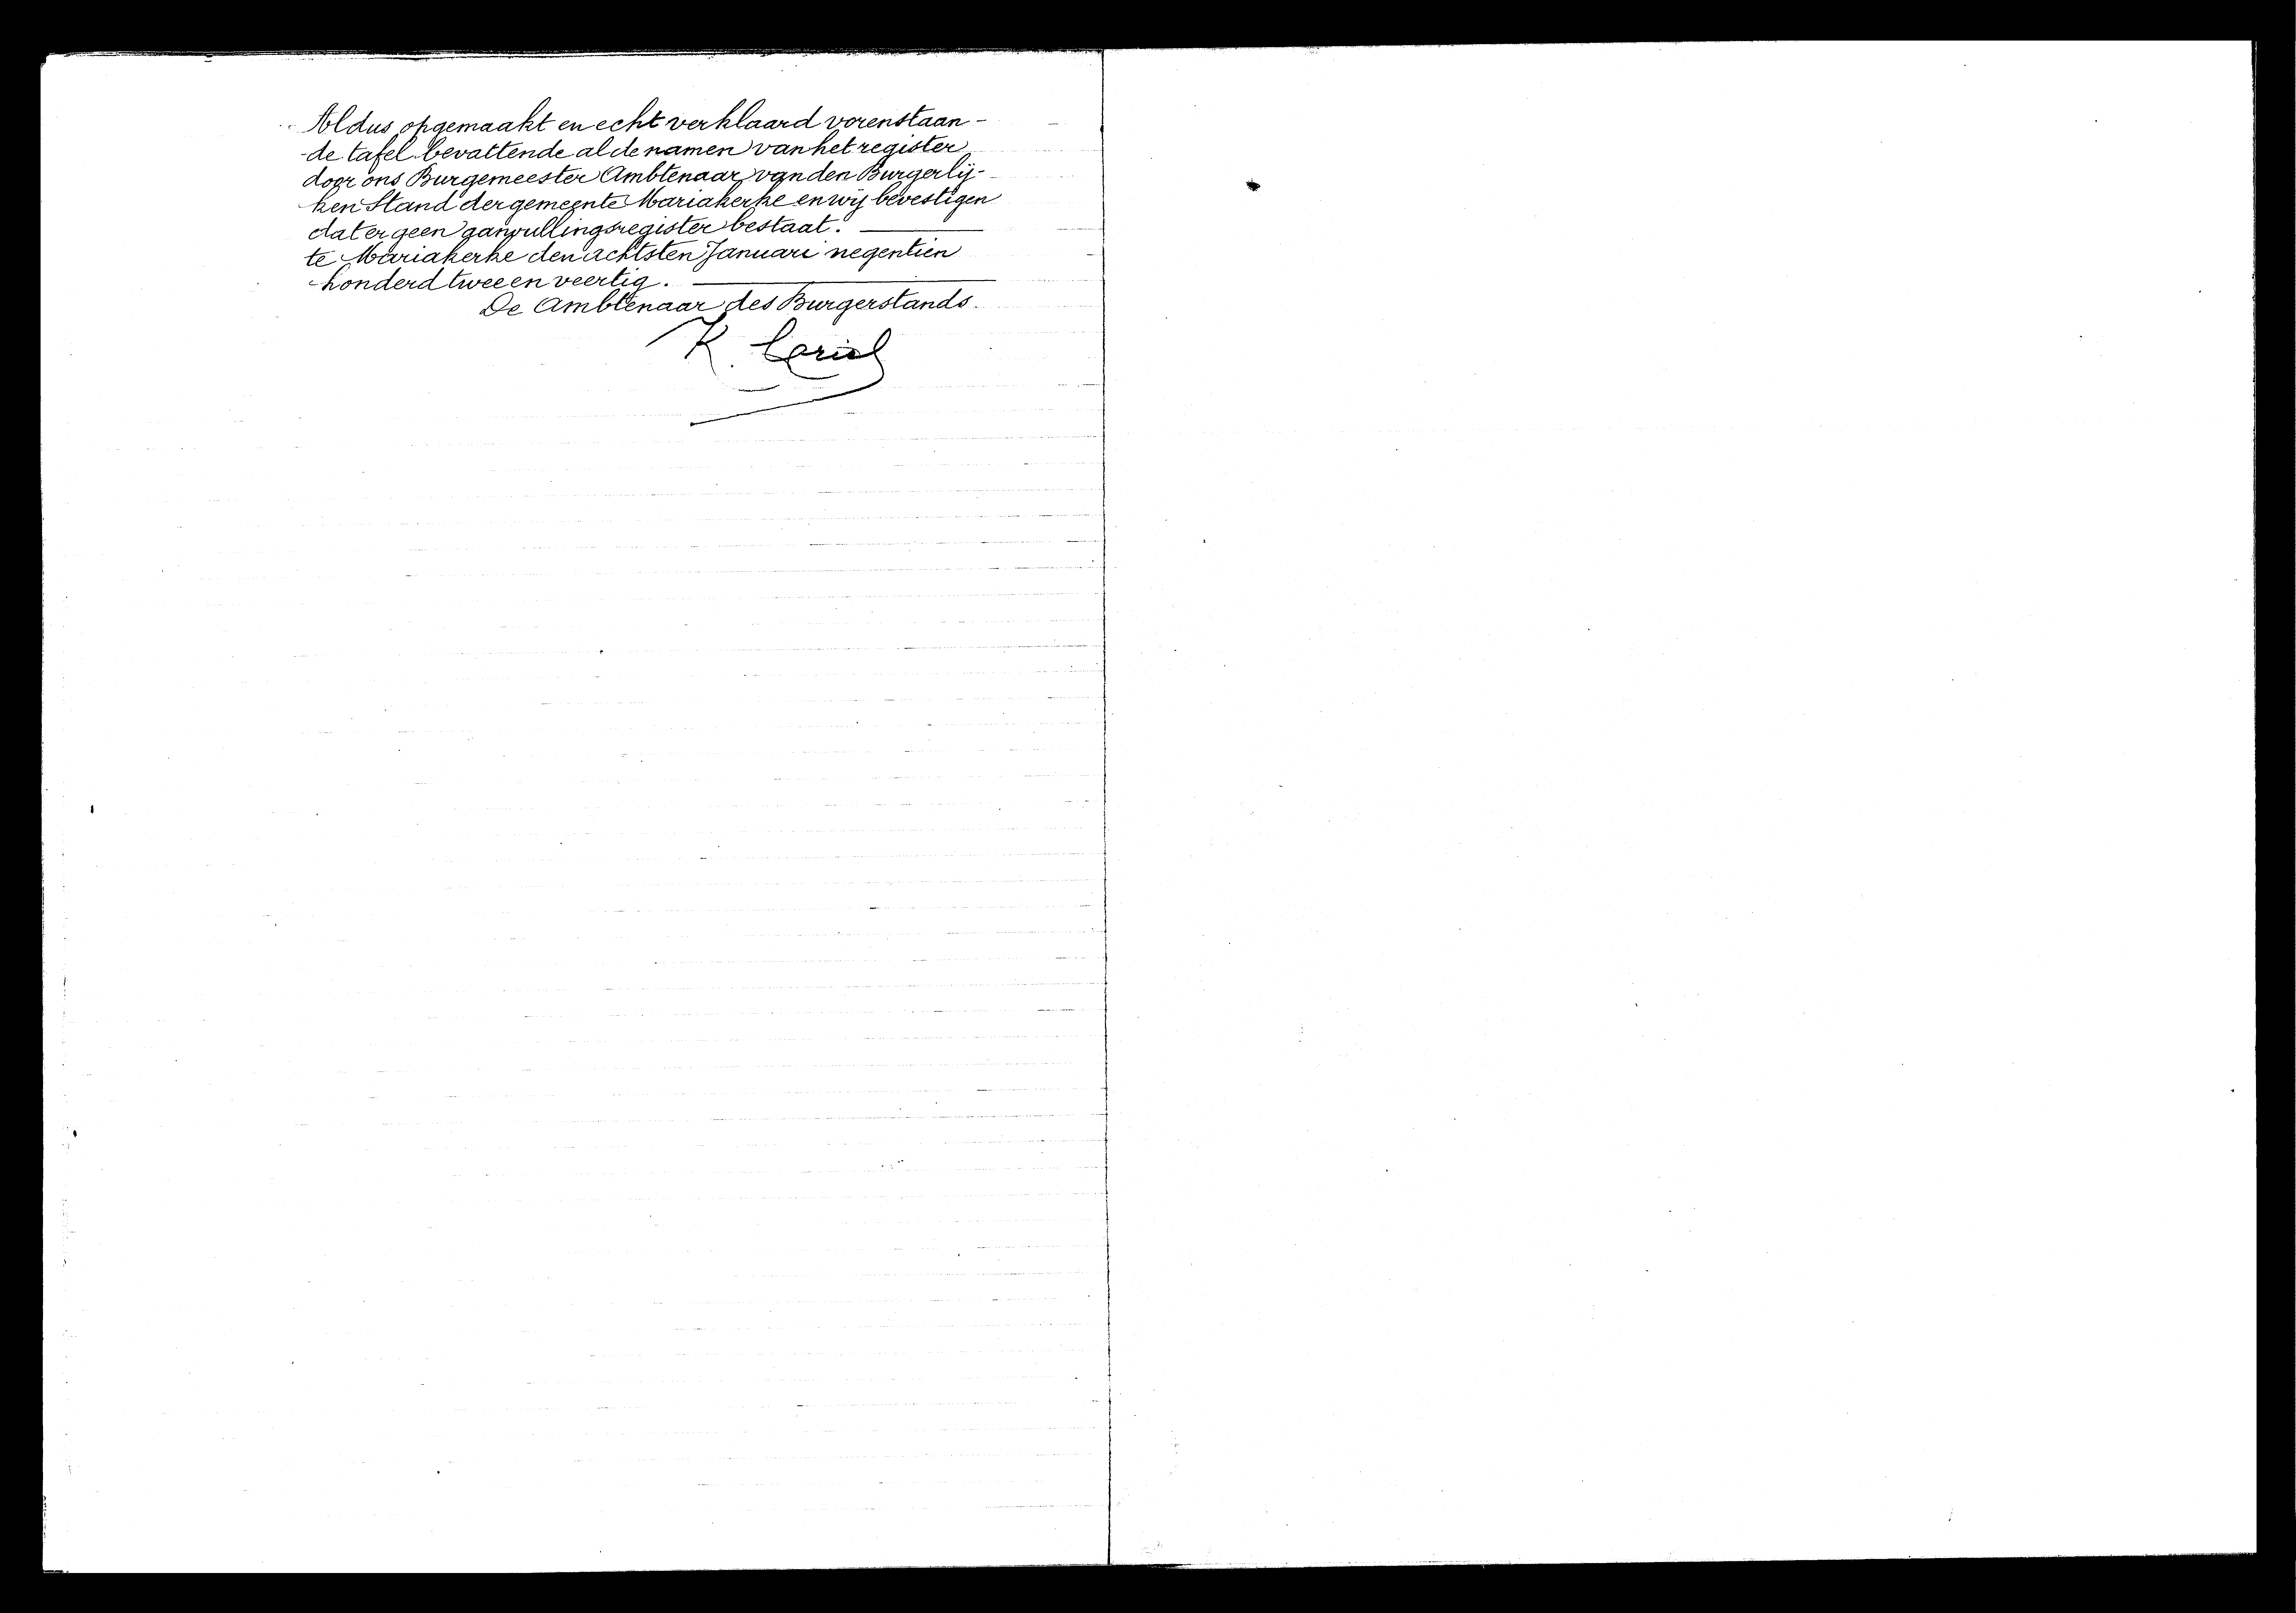 Aldus opgemaakt en echt verklaard vorenstaan-
de tafel bevattende al de namen van het register
door ons Burgemeester Ambtenaar van den Burgerlij-
ken Stand der gemeente Mariakerke en wij bevestigen
dat er geen aanvullingsregister bestaat.
te Mariakerke den achtsten Januari negentien
honderd twee en veertig.
De Ambtenaar des Burgerstands.
K.